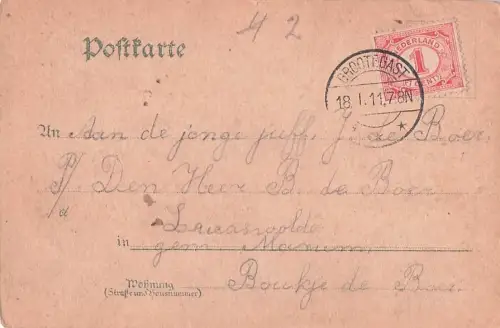 42
Postkarte
NEDERLAND
1
CENT
GROOTEGAST
18.1.11.7-8N
An Aan de jonge juff. J. de Boer.
P/ Den Heer B. de Boer
a/
Lucaswolde
in gem. Marum.
Boukje de Boer.
Wohnung
(Straße und Hausnummer)